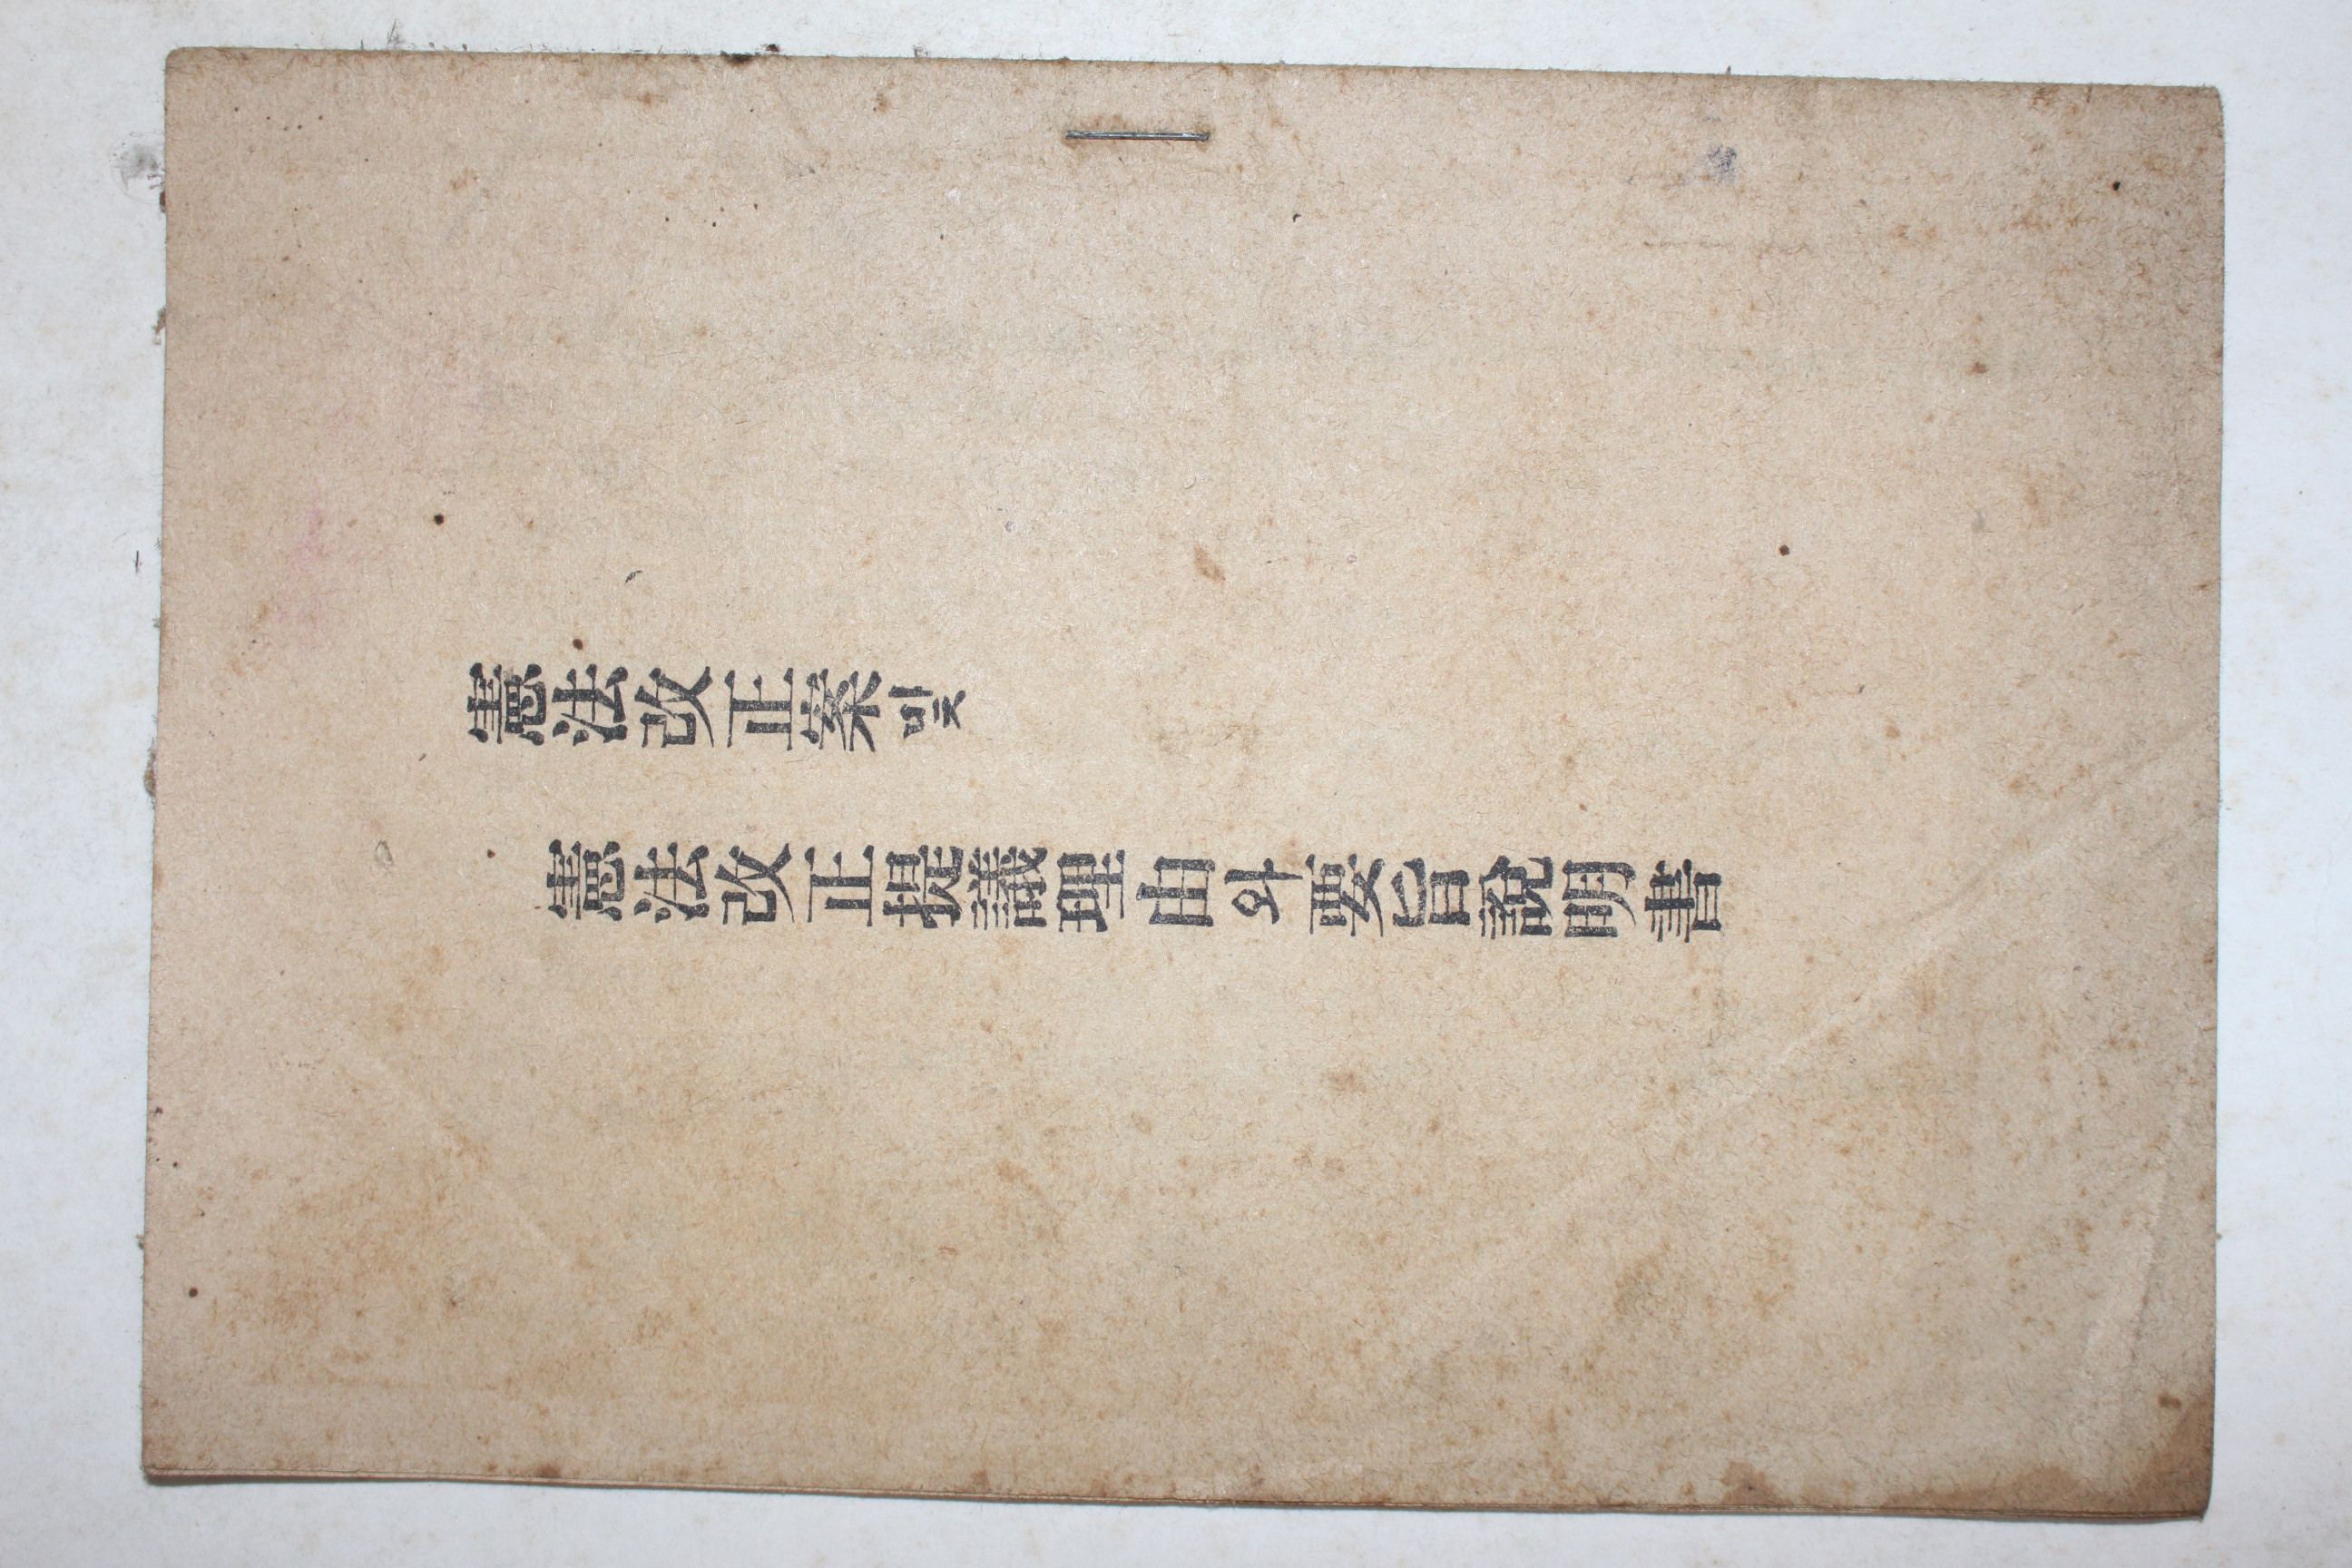 憲法改正案및
憲法改正提議理由와要旨說明書